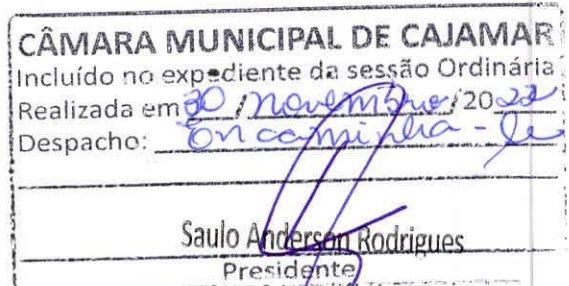 CÂMARA MUNICIPAL DE CAJAMAR
Incluído no expediente da sessão Ordinária
Realizada em 30 / novembro / 2022
Despacho: Encaminha-se
Saulo Anderson Rodrigues
Presidente